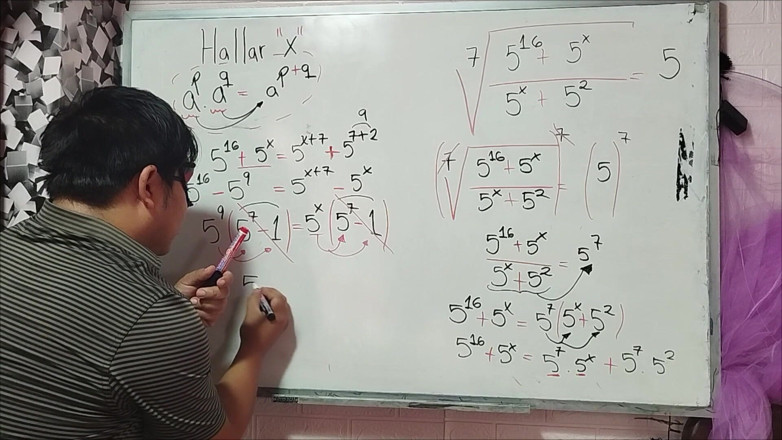 Hallar "X"
a^p . a^q = a^(p+q)
5^16 + 5^x = 5^(x+7) + 5^(7+2) 9
5^16 - 5^9 = 5^(x+7) - 5^x
5^9 (5^7 - 1) = 5^x (5^7 - 1)
5
7√((5^16 + 5^x)/(5^x + 5^2)) = 5
(7√((5^16 + 5^x)/(5^x + 5^2)))^7 = (5)^7
(5^16 + 5^x)/(5^x + 5^2) = 5^7
5^16 + 5^x = 5^7 (5^x + 5^2)
5^16 + 5^x = 5^7 . 5^x + 5^7 . 5^2